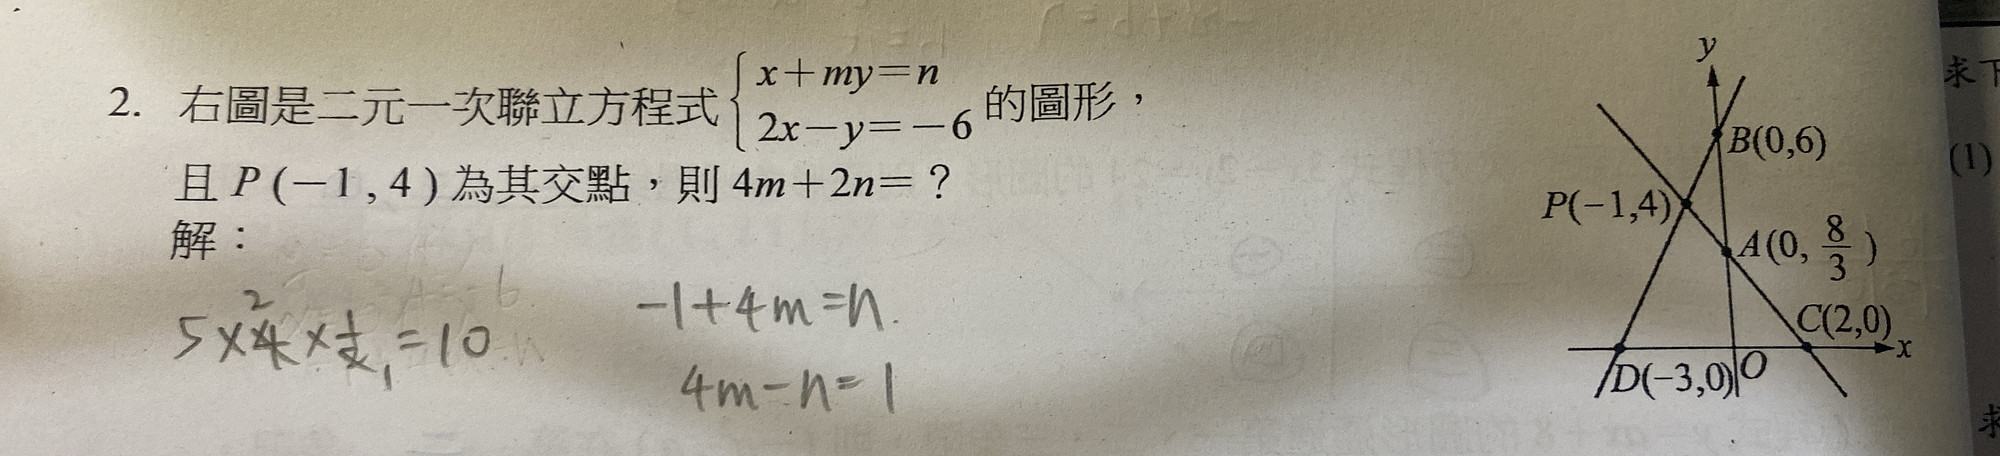 2. 右圖是二元一次聯立方程式{x+my=n 2x-y=-6 的圖形，
且 P(-1,4)為其交點，則 4m+2n=？
解：
5×4×1/2=10
2
1
-1+4m=n.
4m-n=1
y
B(0,6)
P(-1,4)
A(0, 8/3)
C(2,0)
x
D(-3,0)
O
求下
(1)
求